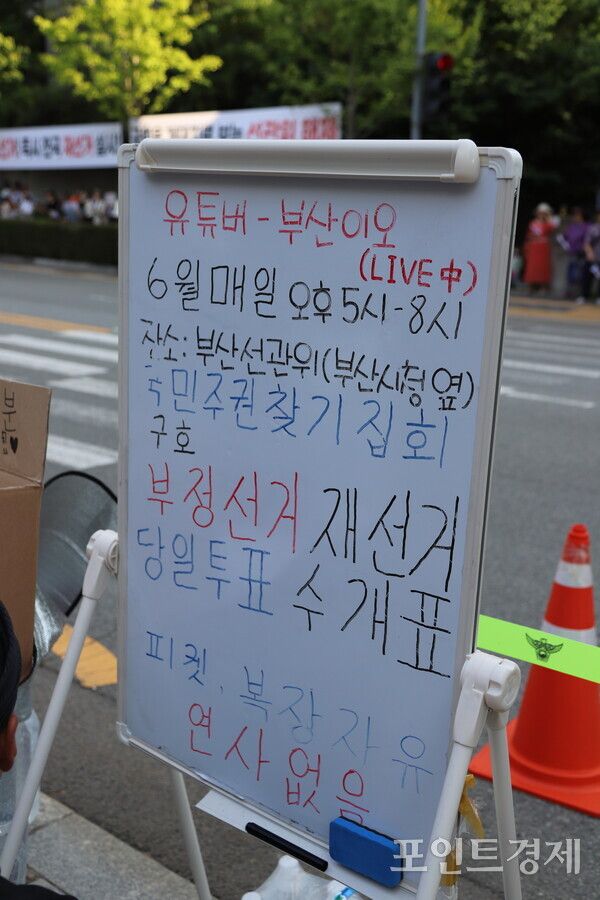 재선거
유튜버 - 부산이오
(LIVE中)
6월 매일 오후 5시-8시
장소: 부산선관위(부산시청 옆)
국민주권찾기집회
구호
부정선거 재선거
당일투표 수개표
피켓, 복장자유
연사없음
포인트경제